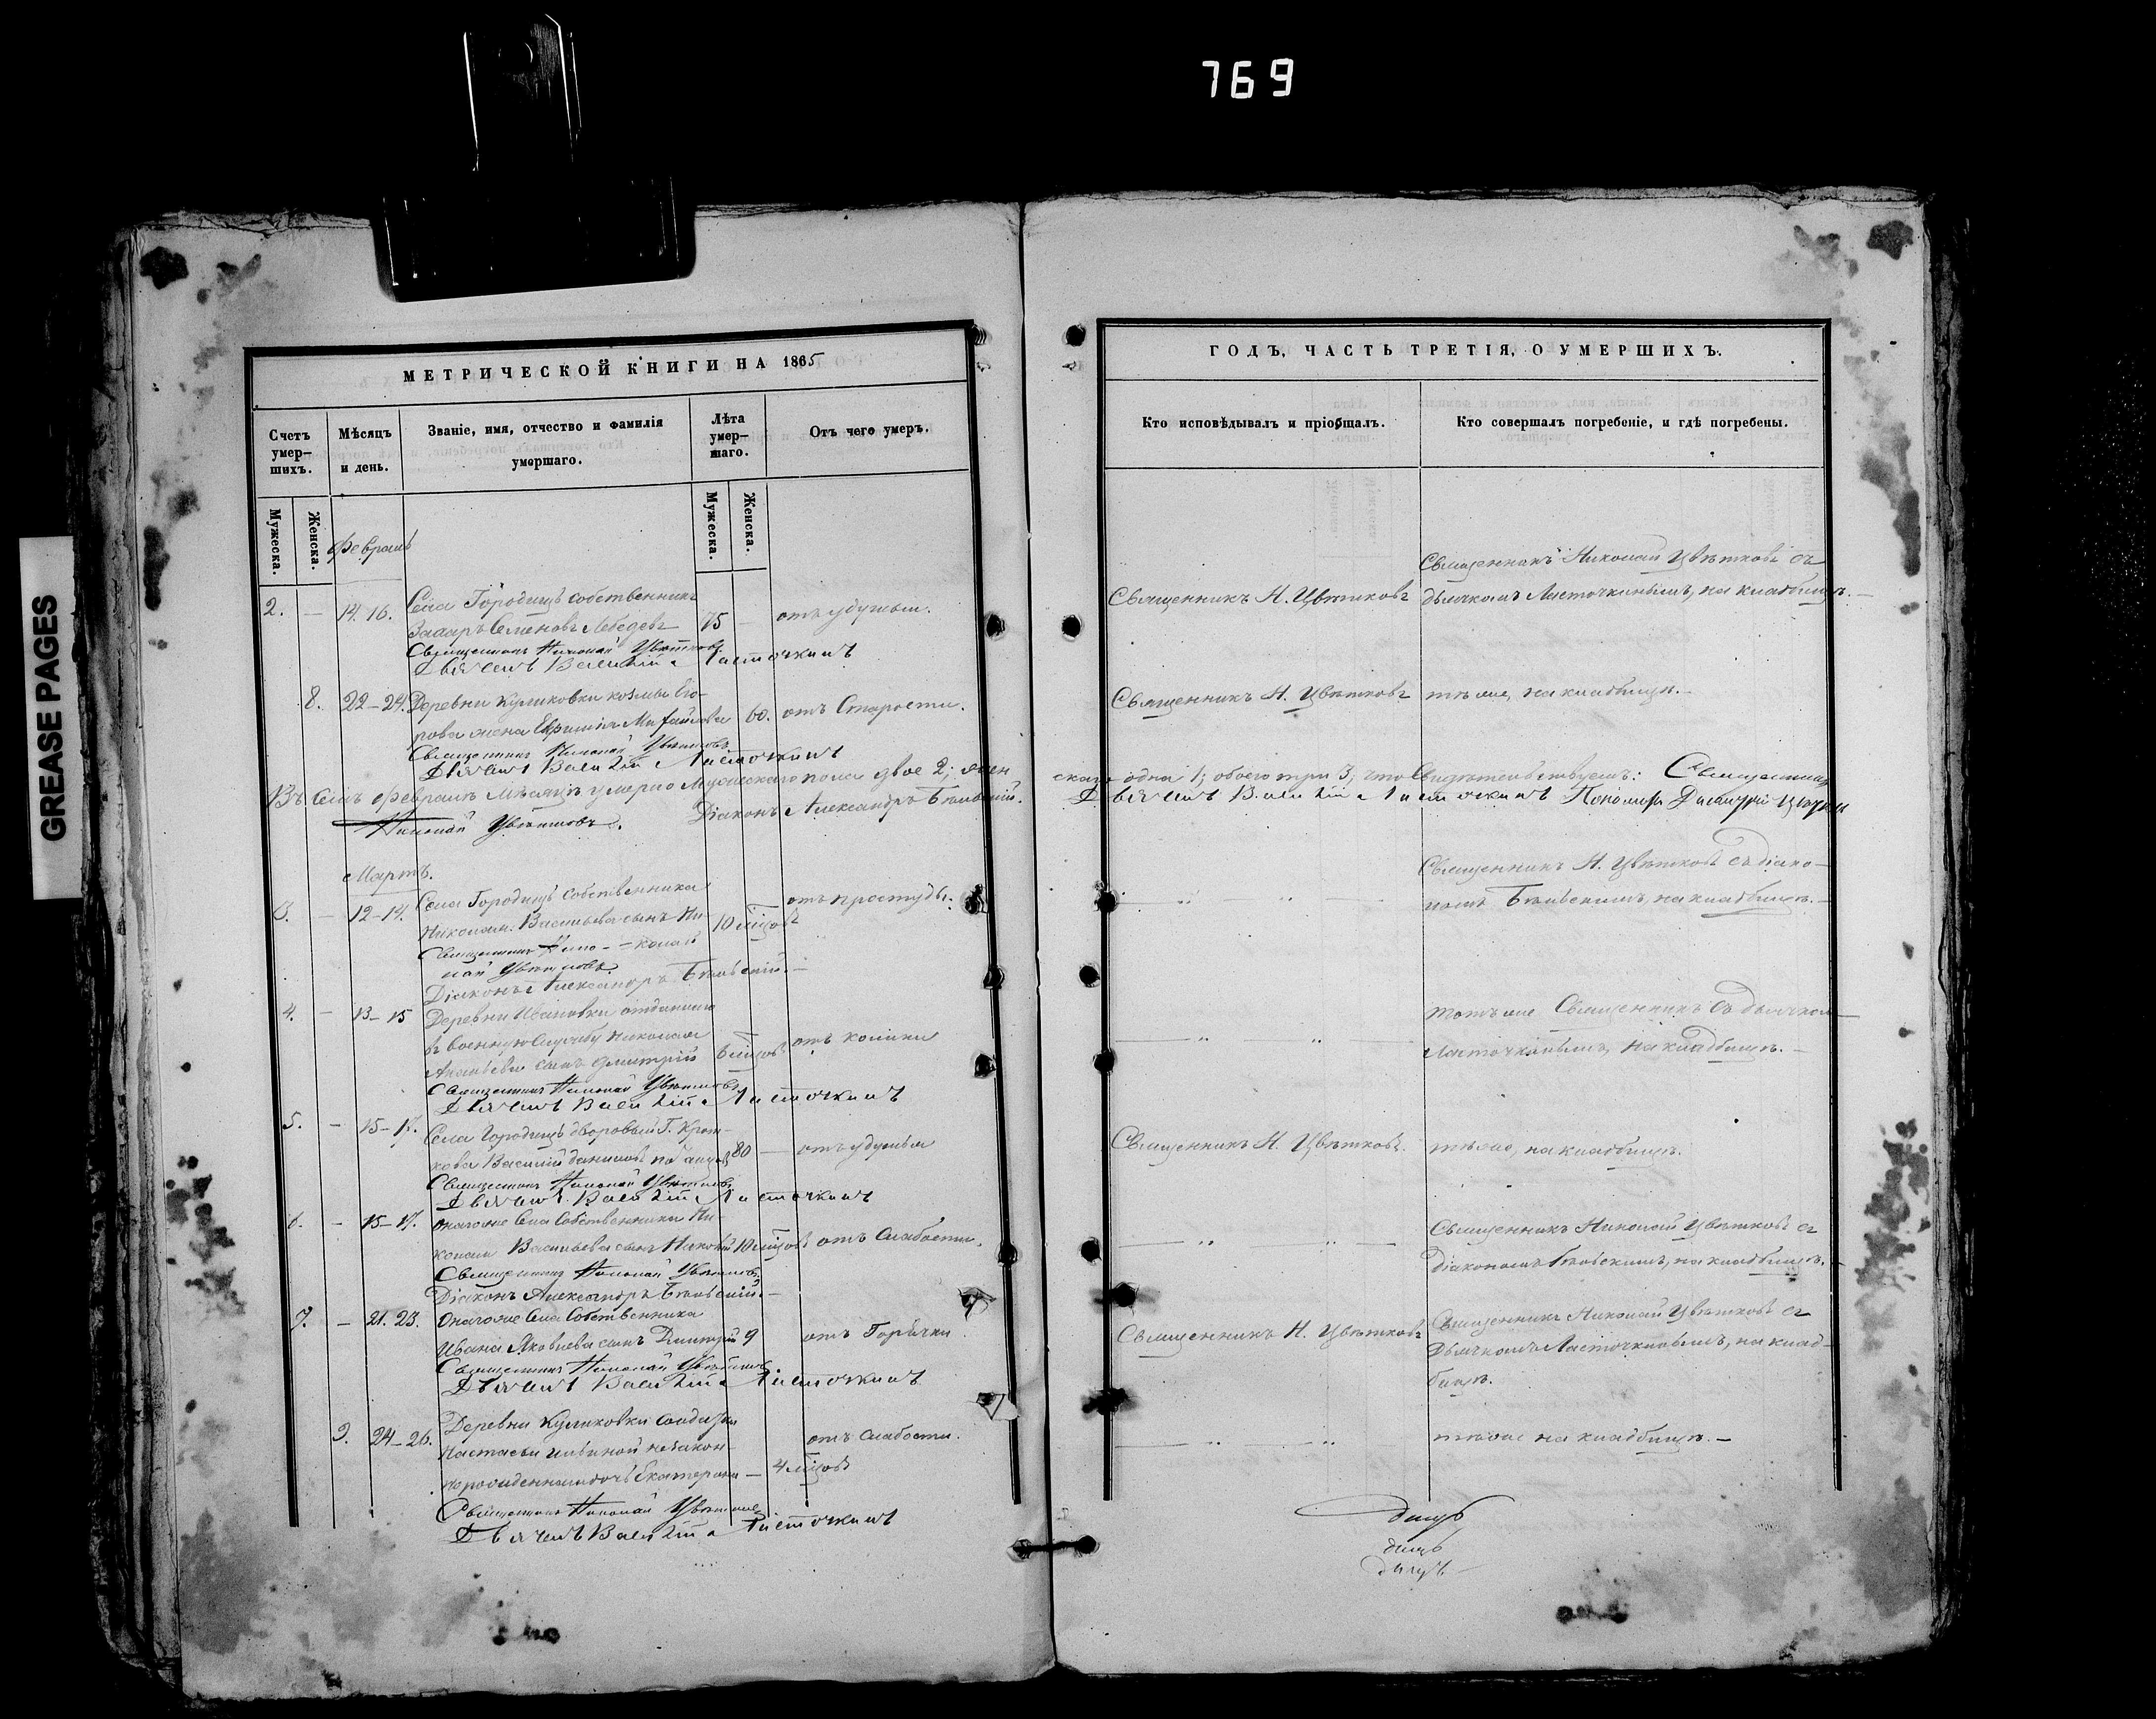 769
GREASE PAGES
МЕТРИЧЕСКОЙ КНИГИ НА 1865
Счетъ умер-шихъ.
Мѣсяцъ и день.
Званіе, имя, отчество и фамилія умершаго.
Лѣта умер-шаго.
Отъ чего умеръ.
Мужеска.
Женска.
Мужеска.
Женска.
Февраль
2. — 14. 16. Села Городищъ собственникъ
Захаръ Семеновъ Лебедевъ 75 — отъ удушья.
Священникъ Николай Цвѣтковъ
Дьячекъ Василій Ласточкинъ
8. 22–24. Деревни Куликовки Козьмы Его-
рова жена Михайлова 60. отъ Старости.
Священникъ Николай Цвѣтковъ
Дьячекъ Василій Ласточкинъ
Въ семъ Февралѣ мѣсяцѣ умерло Мужескаго пола двое 2; жен
Николай Цвѣтковъ.
Діаконъ Александръ
Мартъ.
3. — 12–14. Села Городищъ собственника
Николая Васильева сынъ Ни- 10 мѣцовъ отъ простуды.
колай
Священникъ Нико-
лай Цвѣтковъ
Діаконъ Александръ
4. — 13–15 Деревни Ивановки отданнаго
въ военную службу Николая
сынъ Дмитрій мѣцовъ отъ
Священникъ Николай Цвѣтковъ
Дьячекъ Василій Ласточкинъ
5. — 15–17. Села Городищъ дворовый Г.
Василій 80 — отъ удушья
Священникъ Николай Цвѣтковъ
Дьячекъ Василій Ласточкинъ
6. — 15–17. Онагоже Села Собственника Ни-
колая Васильева сынъ 10 мѣцовъ отъ Слабости.
Священникъ Николай Цвѣтковъ
Діаконъ Александръ
7. — 21. 23. Онагоже Села Собственника
Ивана Яковлева сынъ Дмитрій 9 отъ Горячки
Священникъ Николай Цвѣтковъ
Дьячекъ Василій Ласточкинъ
9. 24–26. Деревни Куликовки Солдатки
Настасьи незакон-
норожденная дочь Екатерина — 4 мѣцовъ отъ слабости.
Священникъ Николай Цвѣтковъ
Дьячекъ Василій Ласточкинъ
ГОДЪ, ЧАСТЬ ТРЕТІЯ, О УМЕРШИХЪ.
Кто исповѣдывалъ и пріобщалъ.
Кто совершалъ погребеніе, и гдѣ погребены.
Священникъ Николай Цвѣтковъ съ
Священникъ Н. Цвѣтковъ дьячкомъ Ласточкинымъ, на кладбищѣ.
Священникъ Н. Цвѣтковъ тѣже, на кладбищѣ.
скаго одна 1; обоего три 3; что свидѣтельствуемъ: Священникъ
Дьячекъ Василій Ласточкинъ Пономарь
Священникъ Н. Цвѣтковъ съ діако-
номъ на кладбищѣ.
тотъже Священникъ съ дьячкомъ
Ласточкинымъ, на кладбищѣ.
Священникъ Н. Цвѣтковъ. тѣже, на кладбищѣ.
Священникъ Николай Цвѣтковъ съ
діакономъ на кладбищѣ.
Священникъ Николай Цвѣтковъ съ
Священникъ Н. Цвѣтковъ дьячкомъ Ласточкинымъ, на клад-
бищѣ.
тѣже на кладбищѣ.